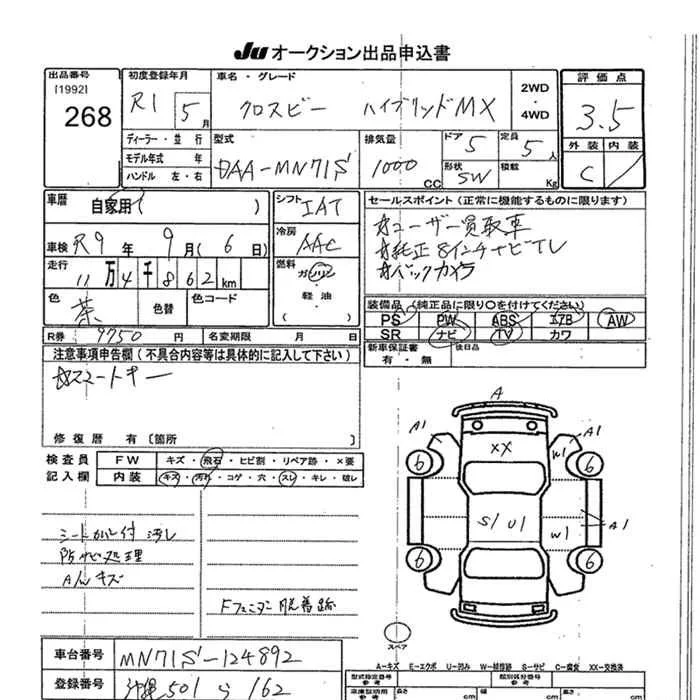 Ju オークション出品申込書
出品番号 初度登録年月 車名・グレード 2WD ・ 4WD 評価点
[1992]
268
R1 5月 クロスビー ハイブリッドMX
3.5
ディーラー・並行 型式 排気量 ドア 5 定員 5人
モデル年式 年
ハンドル 左・右
DAA-MN71S 1000CC 形状 SW 積載 Kg
外装 内装
C
車歴 自家用 ( )
シフト IAT
セールスポイント (正常に機能するものに限ります)
☆ユーザー買取車
☆純正8インチナビTV
☆バックカメラ
車検 R9年 9月 (6日)
冷房 AAC
走行 11万4千862km
燃料 ガソリン・軽油・( )
色 茶 色替 色コード
装備品 (純正品に限り○を付けてください)
PS PW ABS エアB AW
SR ナビ TV カワ
R券 9750円 名変期限 月 日
新車保証書 有・無 後日品
注意事項申告欄 (不具合内容等は具体的に記入して下さい)
☆スマートキー
修復歴 有 〔箇所 〕
検査員 記入欄
FW キズ・飛石・ヒビ割・リペア跡・×要
内装 キズ・汚れ・コゲ・穴・スレ・キレ・破レ
シートカビ付 汚レ
防サビ処理
A/W キズ
Fフェンダー脱着跡
A
A1
A1
XX
W1
6
6
S1 U1
W1
A1
6
6
スペア
A-キズ E-エクボ U-凹み W-補修跡 S-サビ C-腐食 XX-交換済
車台番号 MN71S-124892
登録番号 沖縄 501 ら 162
型式指定番号 参考
類別区分番号 参考
車庫証明用 参考
長さ cm 幅 cm 高さ cm